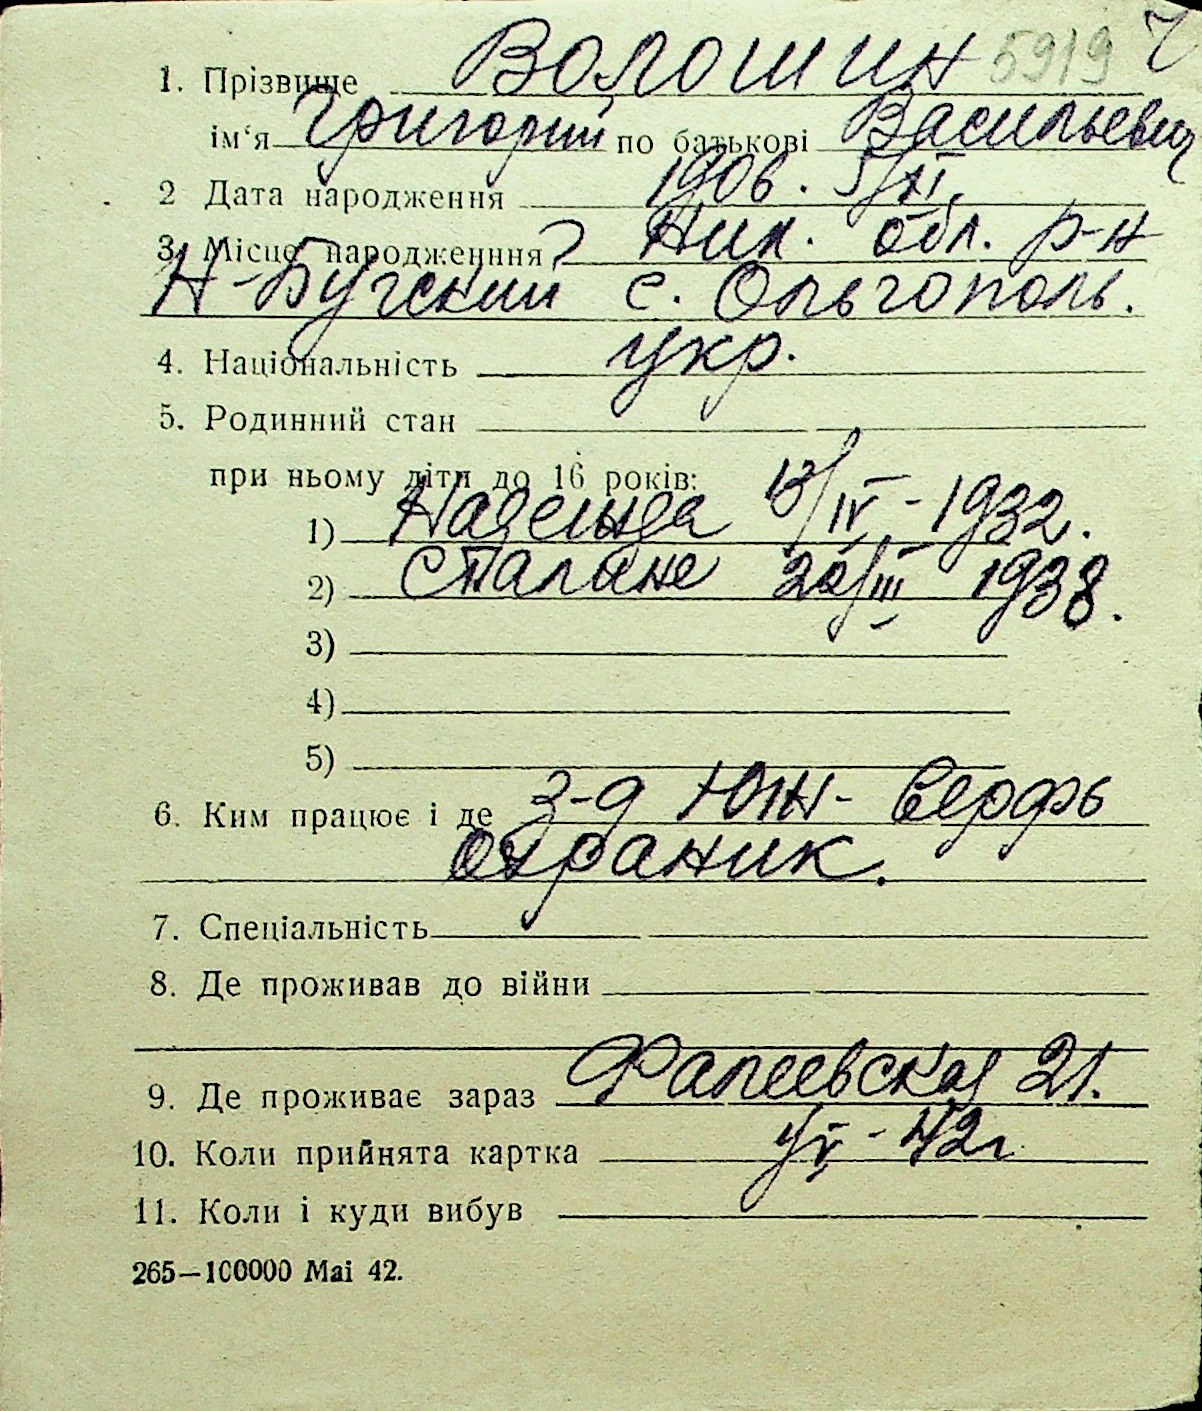 1. Прізвище Волошин 5919
ім‘я Григорий по батькові Васильевич
2 Дата народження 1906. 5/XI.
3. Місце народженння? Ник. обл. р-н
Н-Бугский с. Ольгополь.
4. Національність укр.
5. Родинний стан
при ньому діти до 16 років:
1) Надежда /IV-1932.
2) Сталине 20/III 1938.
3)
4)
5)
6. Ким працює і де з-д Южн- верфь
охраник.
7. Спеціальність
8. Де проживав до війни
9. Де проживає зараз Фалеевская 21.
10. Коли прийнята картка V-42г
11. Коли і куди вибув
265—100000 Mai 42.